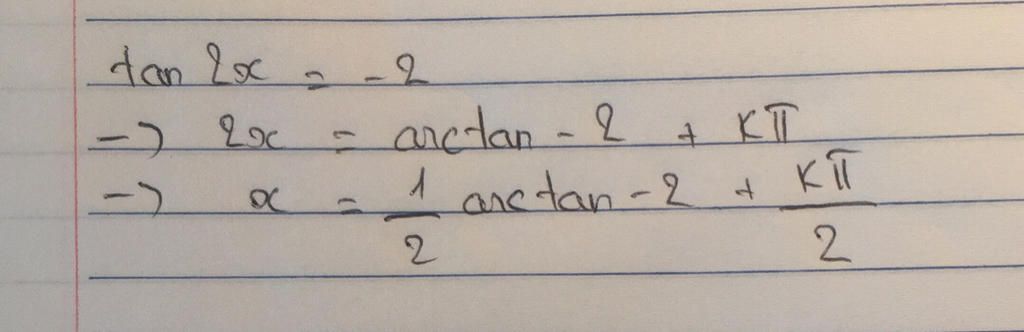 tan 2x = -2
→ 2x = arctan - 2 + kπ
→ x = 1/2 arctan - 2 + kπ/2